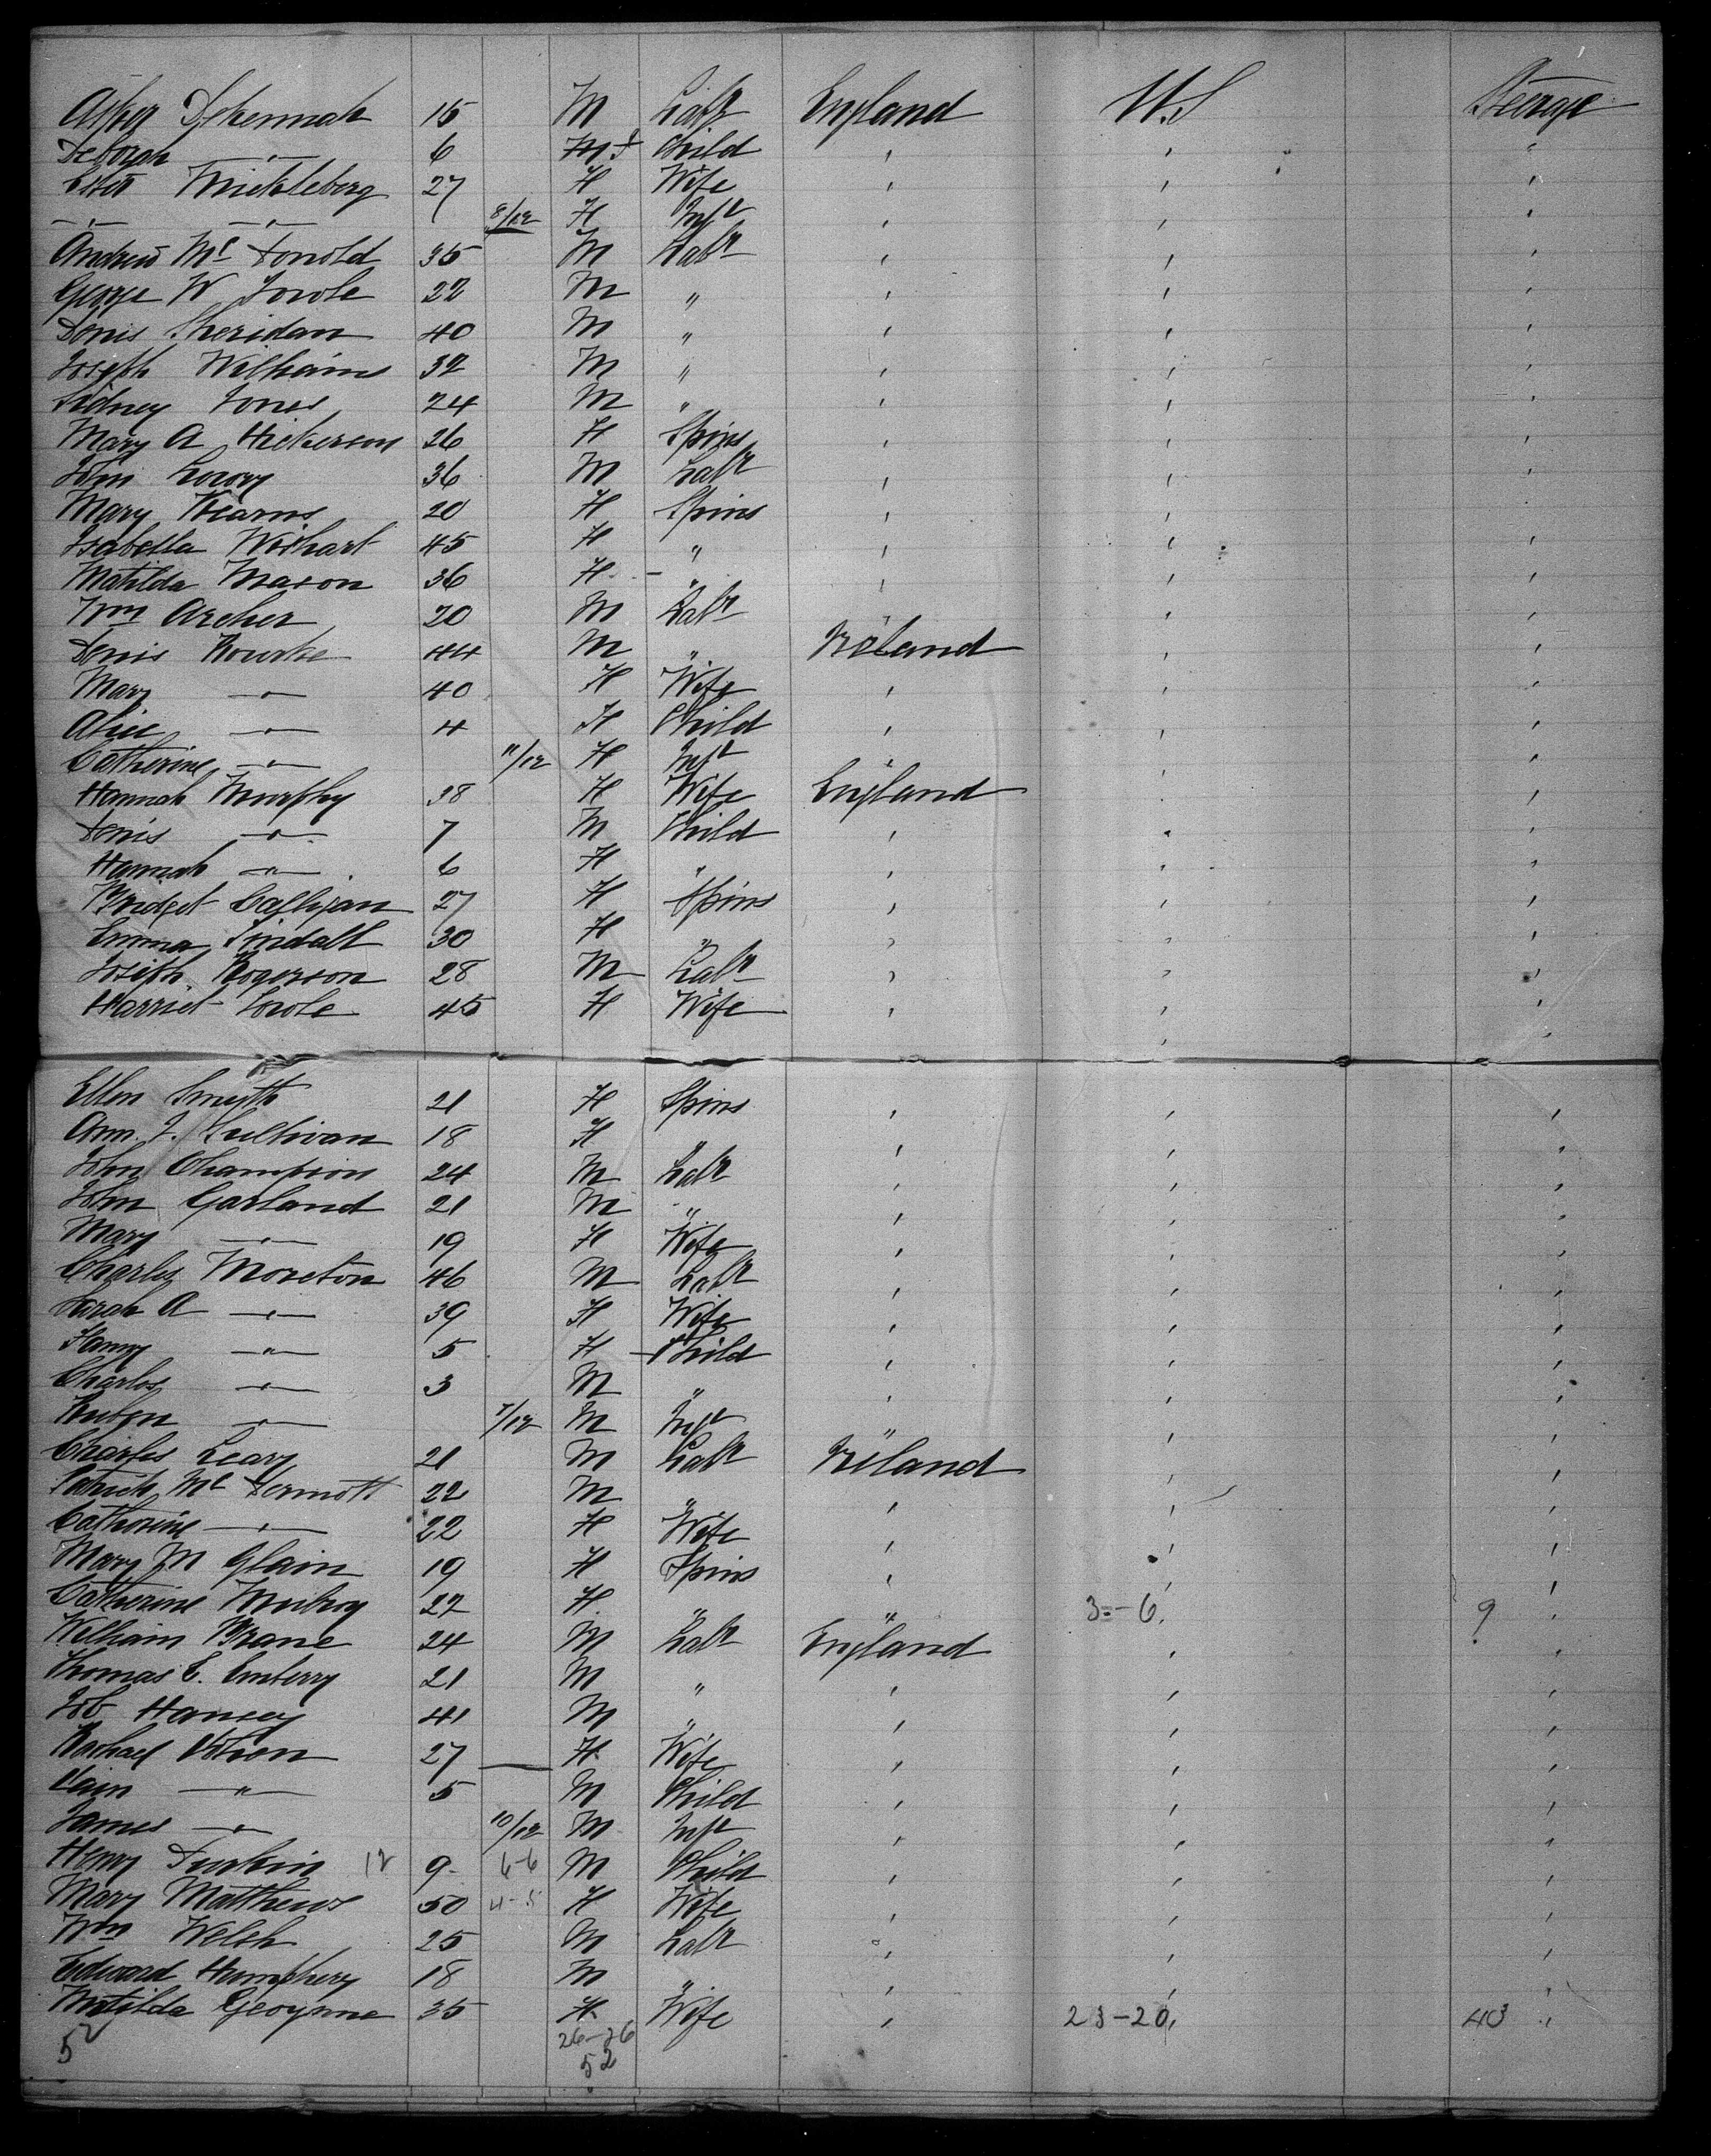 Asher 15 M Labr England U.S Steerage
Deborah " 6 F Child " " "
Ester Mickleberg 27 F Wife " " "
" " 8/12 F Inft " " "
Andrew Mc Donold 35 M Labr " " "
George W Fowle 22 M " " " "
Denis Sheridan 40 M " " " "
Joseph Williams 32 M " " " "
Sidney Jones 24 M " " " "
Mary A Hickerson 26 F Spins " " "
John Lowry 36 M Labr " " "
Mary Kearns 20 F Spins " " "
Isabella Wishart 45 F " " " "
Matilda Mason 36 F " " " "
Wm Archer 20 M Labr " " "
Denis Rourke 44 M " Ireland " "
Mary " 40 F Wife " " "
Alice " 4 F Child " " "
Catherine " 11/12 F Inft " " "
Hannah Murphy 38 F Wife England " "
Denis " 7 M Child " " "
Hannah " 6 F " " " "
Bridget Calligan 27 F Spins " " "
Emma Tindall 30 F " " " "
Joseph Rogerson 28 M Labr " " "
Harriet Fowle 45 F Wife " " "
Ellen Smyth 21 F Spins " " "
Ann J. Sullivan 18 F " " " "
John Champion 24 M Labr " " "
John Garland 21 M " " " "
Mary " 19 F Wife " " "
Charles Moreton 46 M Labr " " "
Sarah A " 39 F Wife " " "
Fanny " 5 F Child " " "
Charles " 3 M " " " "
Ruben " 7/12 M Inft " " "
Charles Leary 21 M Labr Ireland " "
Patrick Mc Dermott 22 M " " " "
Catherine " 22 F Wife " " "
Mary M Glain 19 F Spins " " "
Catherine 22 F " " 3-6 " 9 "
William Crane 24 M Labr England " "
Thomas E. Emberry 21 M " " " "
Job Hancey 41 M " " " "
Rachael 27 F Wife " " "
" 5 M Child " " "
James " 10/12 M Inft " " "
Henry Durbin 12 9 6-6 M Child " " "
Mary Matthews 50 4-5 F Wife " " "
Wm Welsh 25 M Labr " " "
Edward Humphery 18 M " " " "
Matilda 35 F Wife " 23-20 " 43 "
52 26-26
52